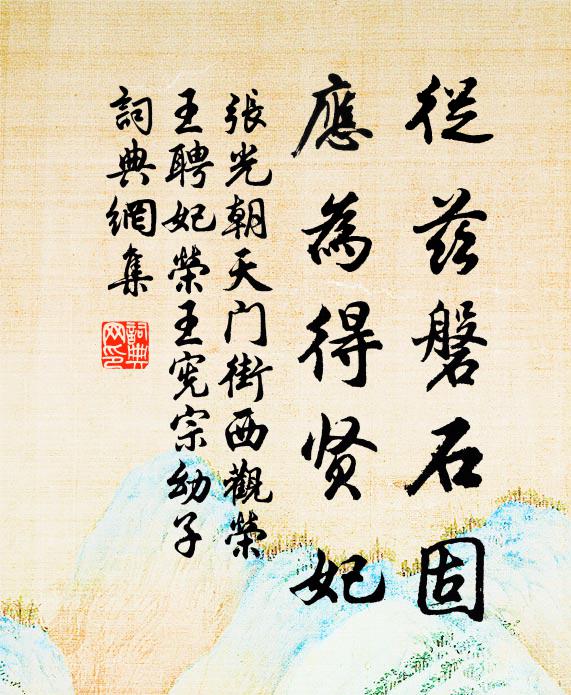 從茲磐石固
應為得贤妃
張光朝天门街西觀榮
王聘妃榮王宪宗幼子
詞典網集
詞典网印